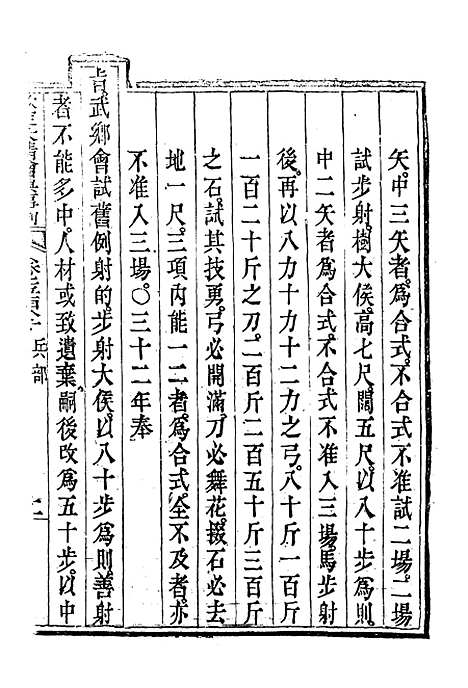 矢。中三矢者。爲合式。不合式不准試二場。二場
試步射。樹大侯。高七尺。闊五尺。以八十步爲則。
中二矢者爲合式。不合式不准入三場。馬步射
後。再以八力十力十二力之弓。八十斤一百斤
一百二十斤之刀。二百斤二百五十斤三百斤
之石。試其技勇。弓必開滿。刀必舞花。掇石必去
地一尺。三項內能一二者。爲合式。全不及者。亦
不准入三場。〇三十二年奉
旨武鄉會試舊例射的。步射大侯。以八十步爲則。善射
者不能多中。人材或致遺棄。嗣後改爲五十步。以中
兵部